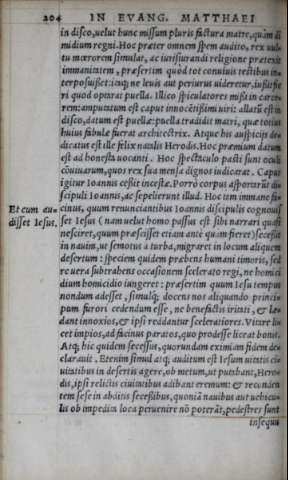 204 IN EVANG. MATTHAEI
in disco, uelut hunc missum pluris factura matre, quàm di
midium regni. Hoc præter omnem spem audito, rex uul-
tu mœrorem simulat, ac iurisiurandi religione prætexit
immanitatem, præsertim quod tot conuiuis testibus in-
terposuisset: itaq; ne leuis aut periurus uideretur, iussit fie
ri quod optarat puella. Illico spiculatores missi in carce-
rem: amputatum est caput innocētissimi uiri: allatū est in
disco, datum est puellæ: puella tradidit matri, quæ totius
huius fabulæ fuerat architectrix. Atque his auspicijs de-
dicatus est ille felix natalis Herodis. Hoc præmium datum
est ad honesta uocanti. Hoc spectaculo pasti sunt oculi
cōuiuarum, quos rex sua mensa dignos iudicarat. Caput
igitur Ioannis cessit incestæ. Porrò corpus asportarūt di-
scipuli Ioannis, ac sepelierunt illud. Hoc tam immane fa-
Et cum au- cinus, quum renunciantibus Ioannis discipulis cognouis
disset Iesus, set Iesus (nam uelut homo passus est sibi narrari quod
nesciret, quum præscisset etiam ante quàm fieret) secessit
in nauim, ut semotus a turba, migraret in locum aliquem
desertum: speciem quidem præbens humani timoris, sed
re uera subtrahens occasionem scelerato regi, ne homici
dium homicidio iungeret: præsertim quum Iesu tempus
nondum adesset, simulq; docens nos aliquando princi-
pum furori cedendum esse, ne benefictis irritati, & lę-
dant innoxios, & ipsi reddantur sceleratiores. Vitare li-
cet impios, ad facinus paratos, quo prodesse liceat bonis.
Atq; hic quidem secessus, quorundam eximiam fidem de-
clarauit. Etenim simul atq; auditum est Iesum uitatis ci-
uitatibus in desertis agere, ob metum, ut putabant, Hero-
dis, ipsi relictis ciuitatibus adibant eremum: & reconden
tem sese in abditis secessibus, quoniā nauibus aut uehicu-
lis ob impedita loca peruenire nō poterāt, pedestres sunt
insequu